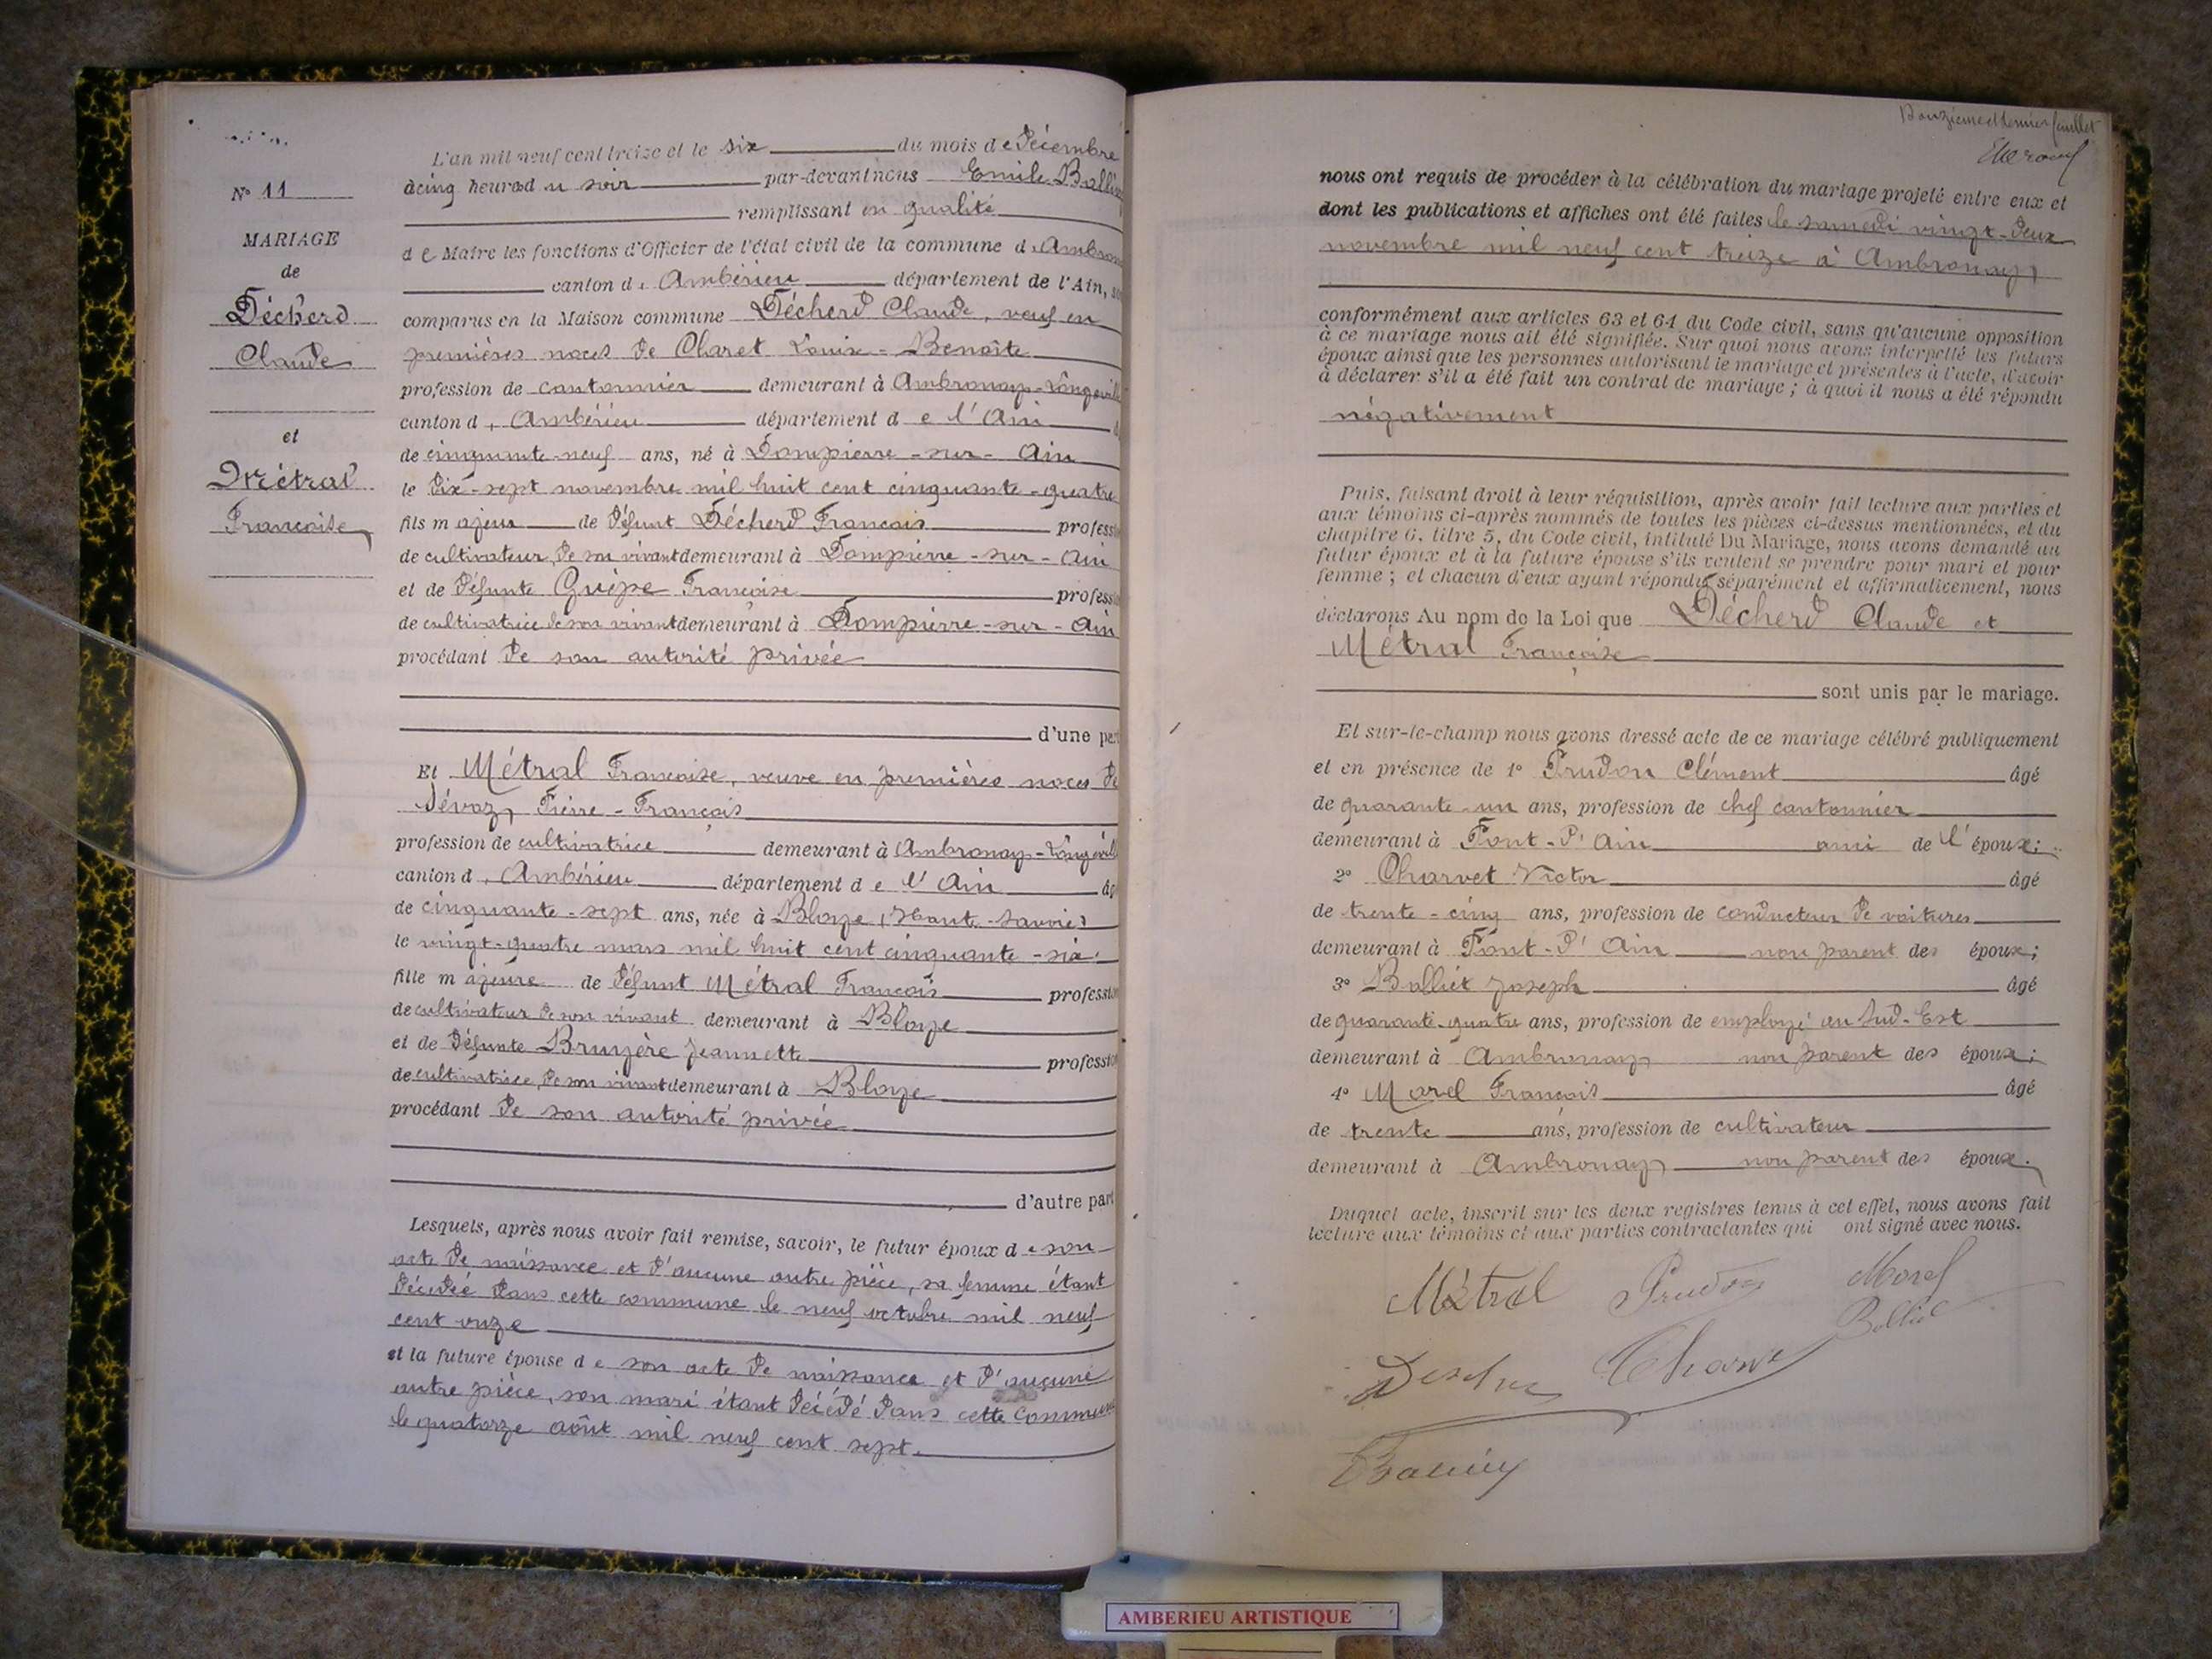 L'an mil neuf cent treize et le six du mois de Décembre
N° 11
à cinq heures du soir par-devant nous Emile Balli
remplissant en qualité
MARIAGE
de Maire les fonctions d'Officier de l'état civil de la commune d' Ambron
de
canton d' Ambérieu département de l'Ain,
Décherd
comparus en la Maison commune Décherd Claude, veuf en
Claude
premières noces de Claret Louise-Benoîte
profession de cantonnier demeurant à Ambronay-Longeville
canton d' Ambérieu département de l'Ain
et
de cinquante-neuf ans, né à Dompierre-sur-Ain
Métral
le dix-sept novembre mil huit cent cinquante-quatre
Françoise
fils majeur de défunt Décherd François profess
de cultivateur, de son vivant demeurant à Dompierre-sur-Ain
et de défunte Guêpe Françoise profess
de cultivatrice de son vivant demeurant à Dompierre-sur-Ain
procédant de son autorité privée
d'une par
Et Métral Francoise, veuve en premières noces de
Sévoz, Pierre-François
profession de cultivatrice demeurant à Ambronay-Longevill
canton d' Ambérieu département de l'Ain âg
de cinquante-sept ans, née à Bloye (Haute-Savoie)
le vingt-quatre mars mil huit cent cinquante-six
fille majeure de défunt Métral François profession
de cultivateur de son vivant demeurant à Bloye
et de défunte Bruyère Jeannette profession
de cultivatrice, de son vivant demeurant à Bloye
procédant de son autorité privée
d'autre part
Lesquels, après nous avoir fait remise, savoir, le futur époux de son
acte de naissance et d'aucune autre pièce, sa femme étant
décédée dans cette commune le neuf octobre mil neuf
cent onze
et la future épouse de son acte de naissance et d'aucune
autre pièce, son mari étant décédé dans cette commune
le quatorze août mil neuf cent sept.
Douzième et dernier feuillet
nous ont requis de procéder à la célébration du mariage projeté entre eux et
dont les publications et affiches ont été faites le samedi vingt-deux
novembre mil neuf cent treize à Ambronay,
conformément aux articles 63 et 64 du Code civil, sans qu'aucune opposition
à ce mariage nous ait été signifiée. Sur quoi nous avons interpellé les futurs
époux ainsi que les personnes autorisant le mariage et présentes à l'acte, d'avoir
à déclarer s'il a été fait un contrat de mariage ; à quoi il nous a été répondu
négativement
Puis, faisant droit à leur réquisition, après avoir fait lecture aux parties et
aux témoins ci-après nommés de toutes les pièces ci-dessus mentionnées, et du
chapitre 6, titre 5, du Code civil, intitulé Du Mariage, nous avons demandé au
futur époux et à la future épouse s'ils veulent se prendre pour mari et pour
femme ; et chacun d'eux ayant répondu séparément et affirmativement, nous
déclarons Au nom de la Loi que Décherd Claude et
Métral Françoise
sont unis par le mariage.
Et sur-le-champ nous avons dressé acte de ce mariage célébré publiquement
et en présence de 1° Prudon Clément âgé
de quarante-un ans, profession de chef cantonnier
demeurant à Pont-d'Ain ami de l'époux;
2° Charvet Victor âgé
de trente-cinq ans, profession de conducteur de voitures
demeurant à Pont-d'Ain non parent des époux;
3° Balliet Joseph âgé
de quarante-quatre ans, profession de employé au Sud-Est
demeurant à Ambronay non parent des époux;
4° Morel François âgé
de trente ans, profession de cultivateur
demeurant à Ambronay non parent des époux.
Duquel acte, inscrit sur les deux registres tenus à cet effet, nous avons fait
lecture aux témoins et aux parties contractantes qui ont signé avec nous.
Métral Prudon Morel
Balliet
AMBERIEU ARTISTIQUE